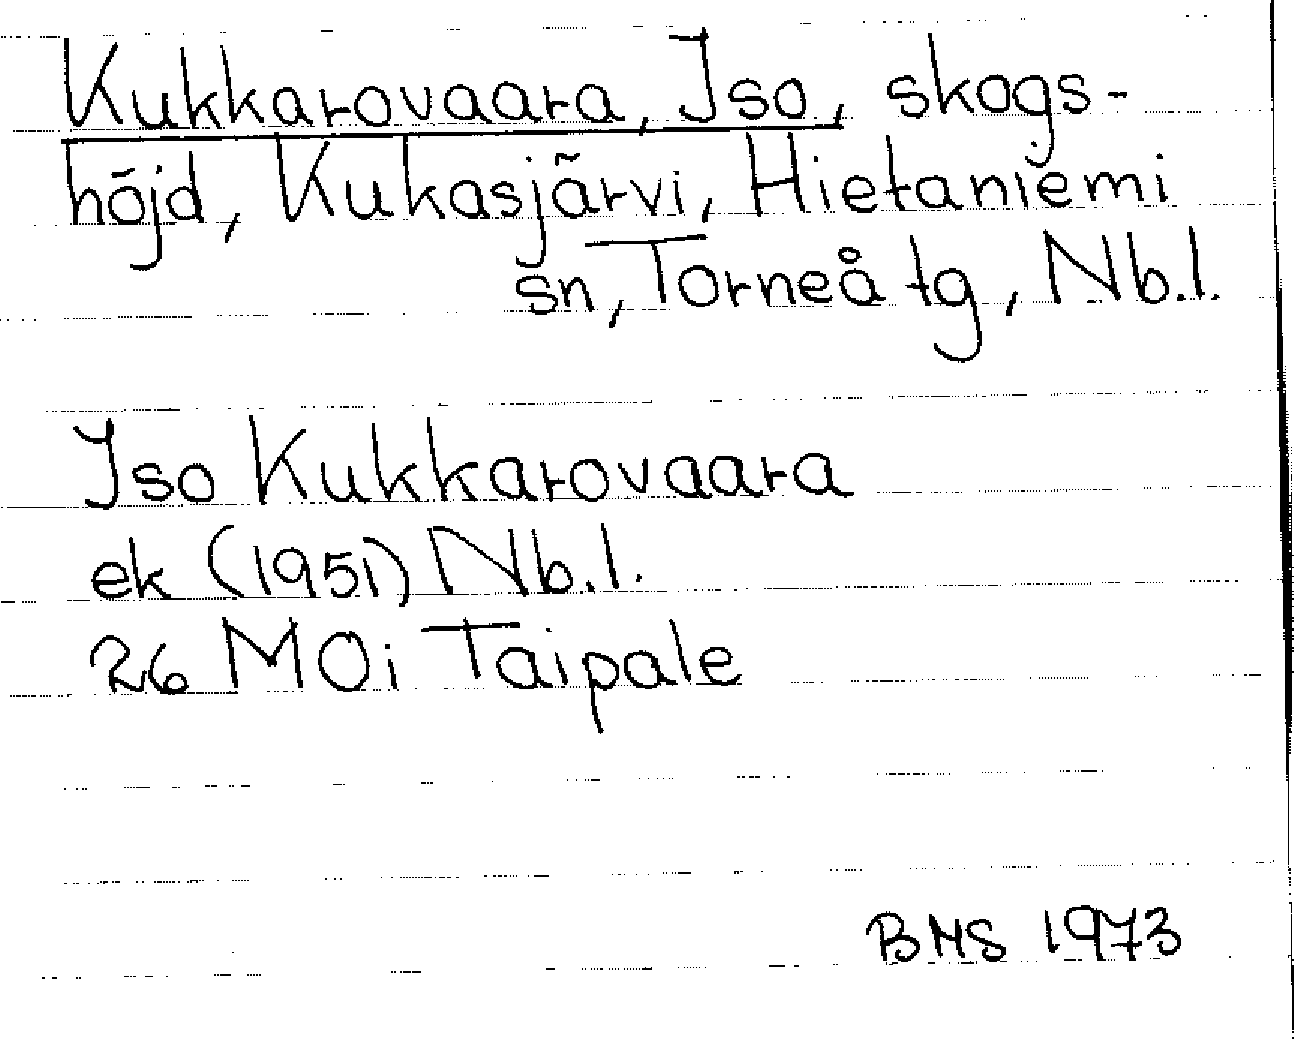 Kukkarovaara, Iso, skogs-
höjd, Kukasjärvi, Hietaniemi
sn, Torneå tg, Nb.l.
Iso Kukkarovaara
ek (1951) Nb.l.
26 MOi Taipale
BMS 1973